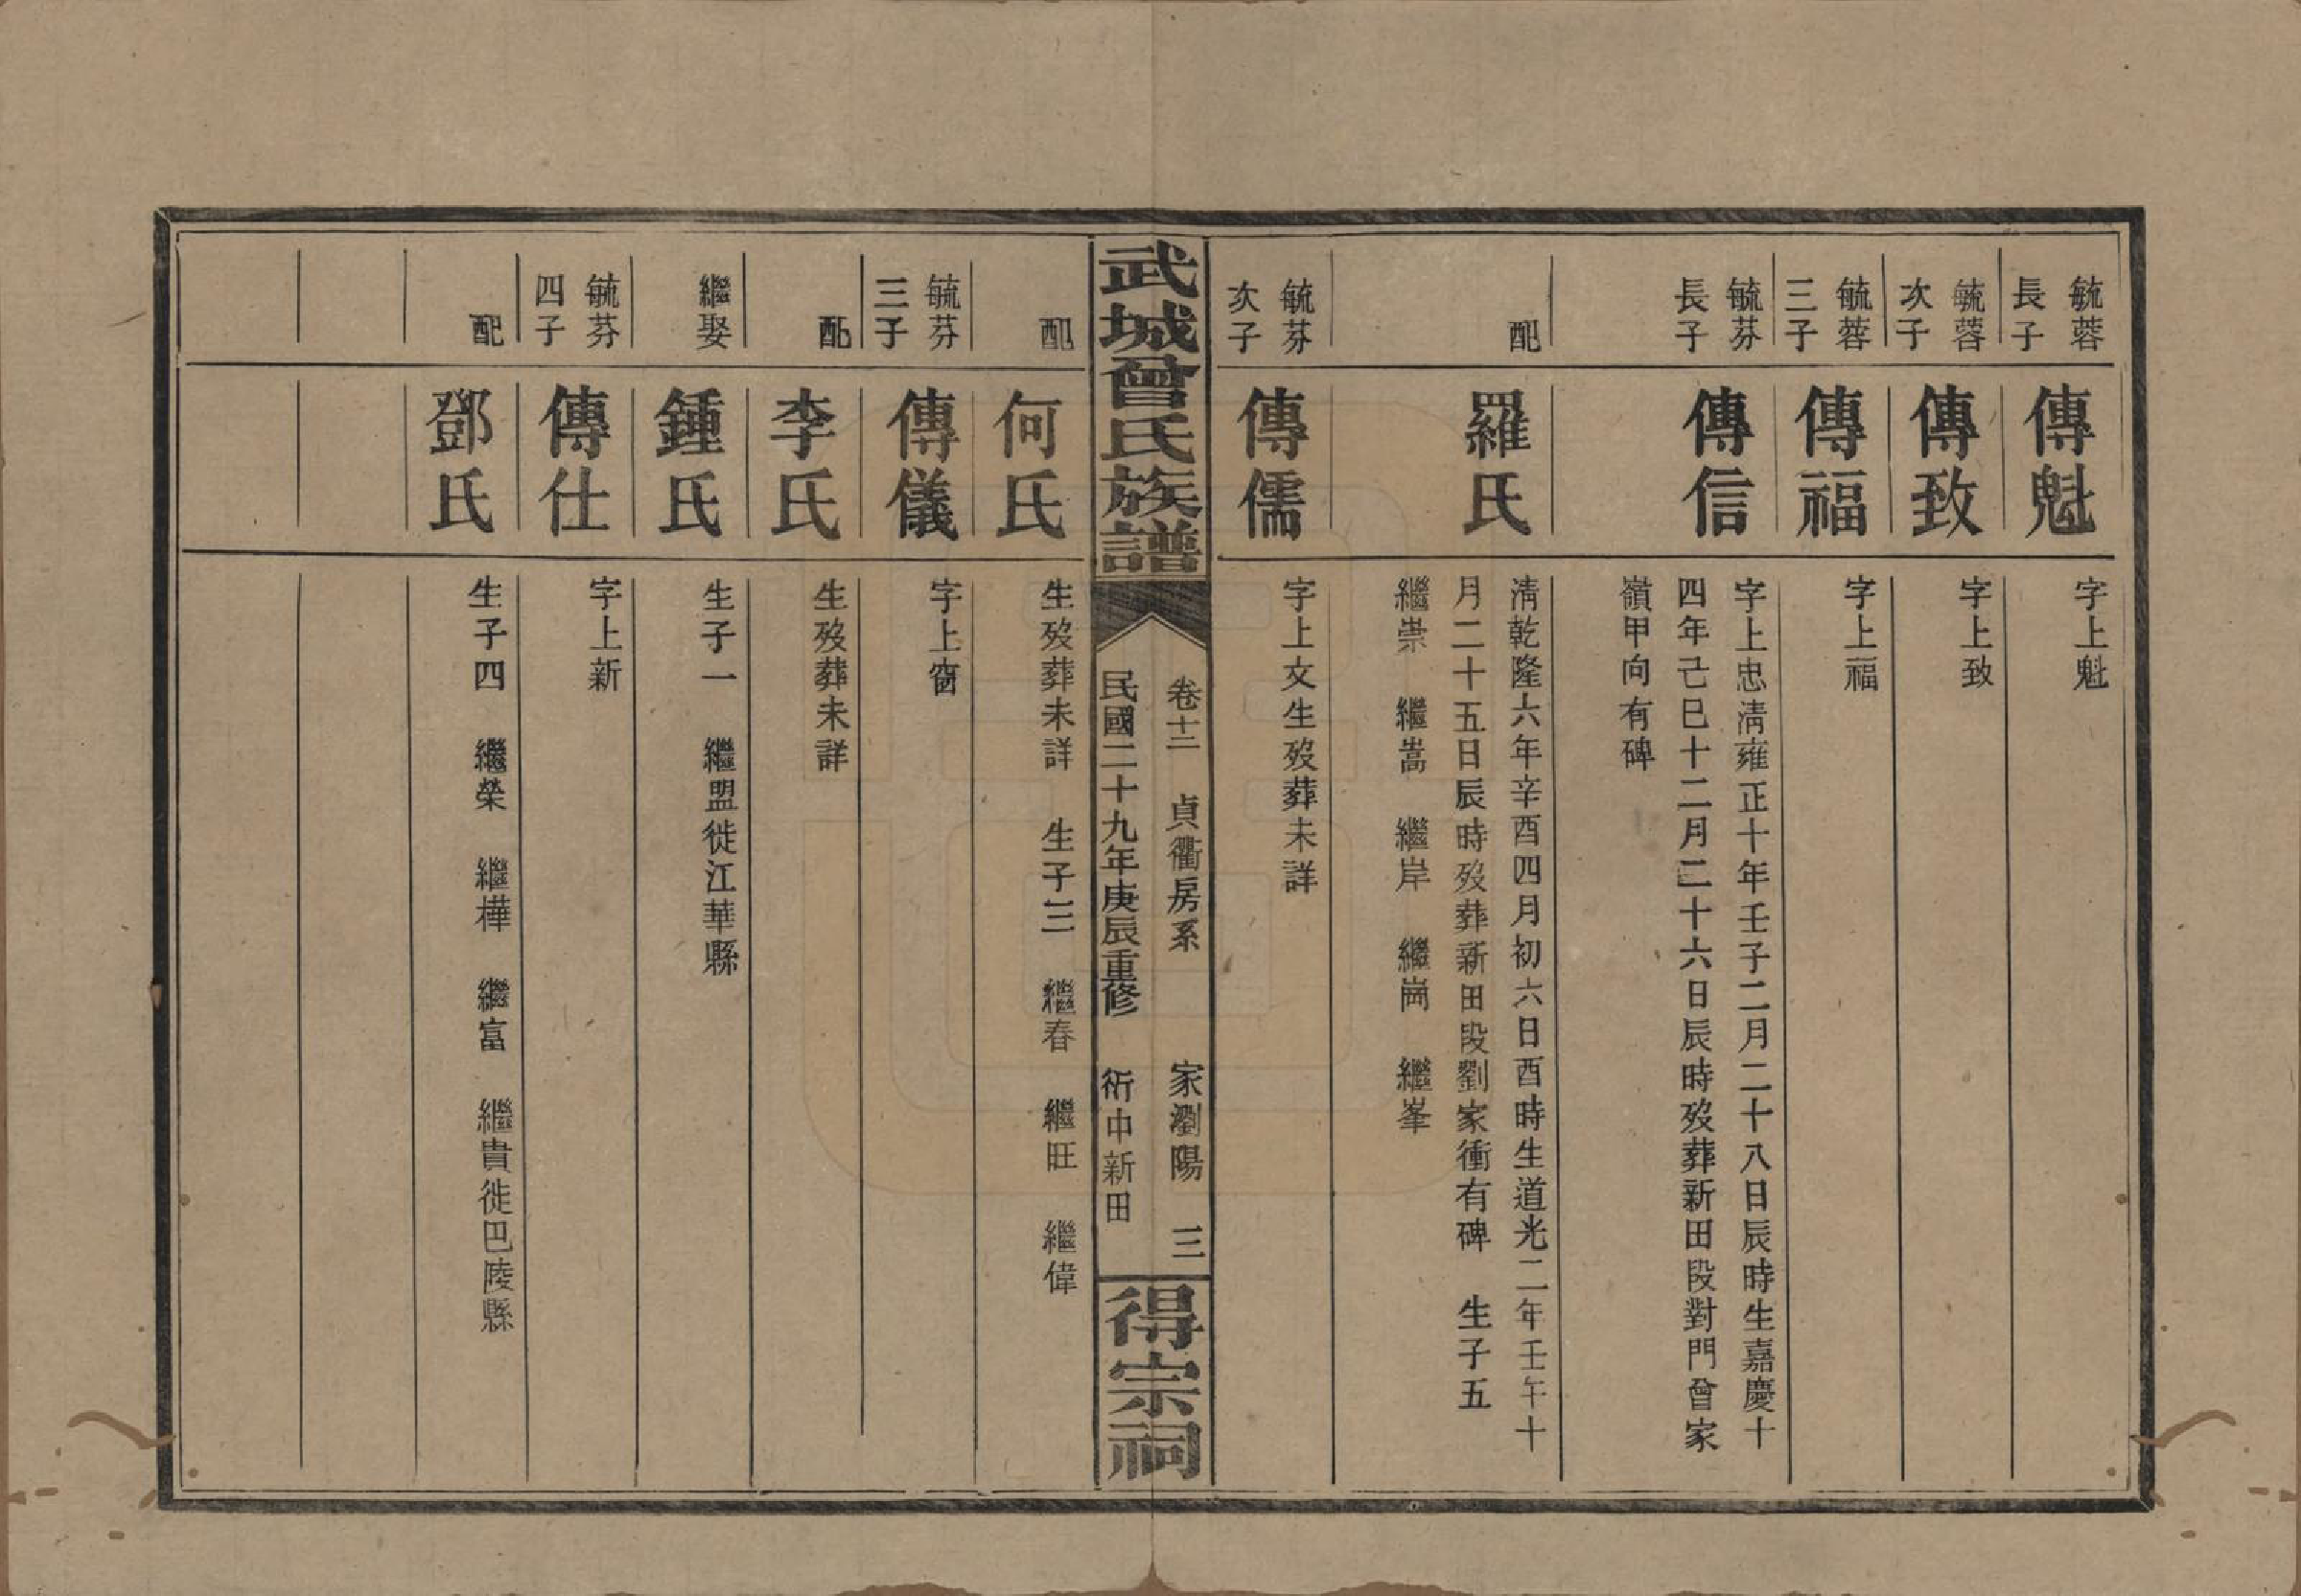 毓蓉
長子
傳魁
字上魁
毓蓉
次子
傳致
字上致
毓蓉
三子
傳福
字上福
毓芬
長子
傳信
字上忠淸雍正十年壬子二月二十八日辰時生嘉慶十
四年己巳十二月二十六日辰時歿葬新田段對門曾家
嶺甲向有碑
配
羅氏
淸乾隆六年辛酉四月初六日酉時生道光二年壬午十
月二十五日辰時歿葬新田段劉家衝有碑　生子五
繼崇　繼嵩　繼岸　繼崗　繼峯
毓芬
次子
傳儒
字上文生歿葬未詳
武城曾氏族譜
卷十二　貞衢房系　家瀏陽　三
民國二十九年庚辰重修　衍中新田
得宗祠
配
何氏
生歿葬未詳　生子三　繼春　繼旺　繼偉
毓芬
三子
傳儀
字上奫
配
李氏
生歿葬未詳
繼娶
鍾氏
生子一　繼盟徙江華縣
毓芬
四子
傳仕
字上新
配
鄧氏
生子四　繼榮　繼樺　繼富　繼貴徙巴陵縣